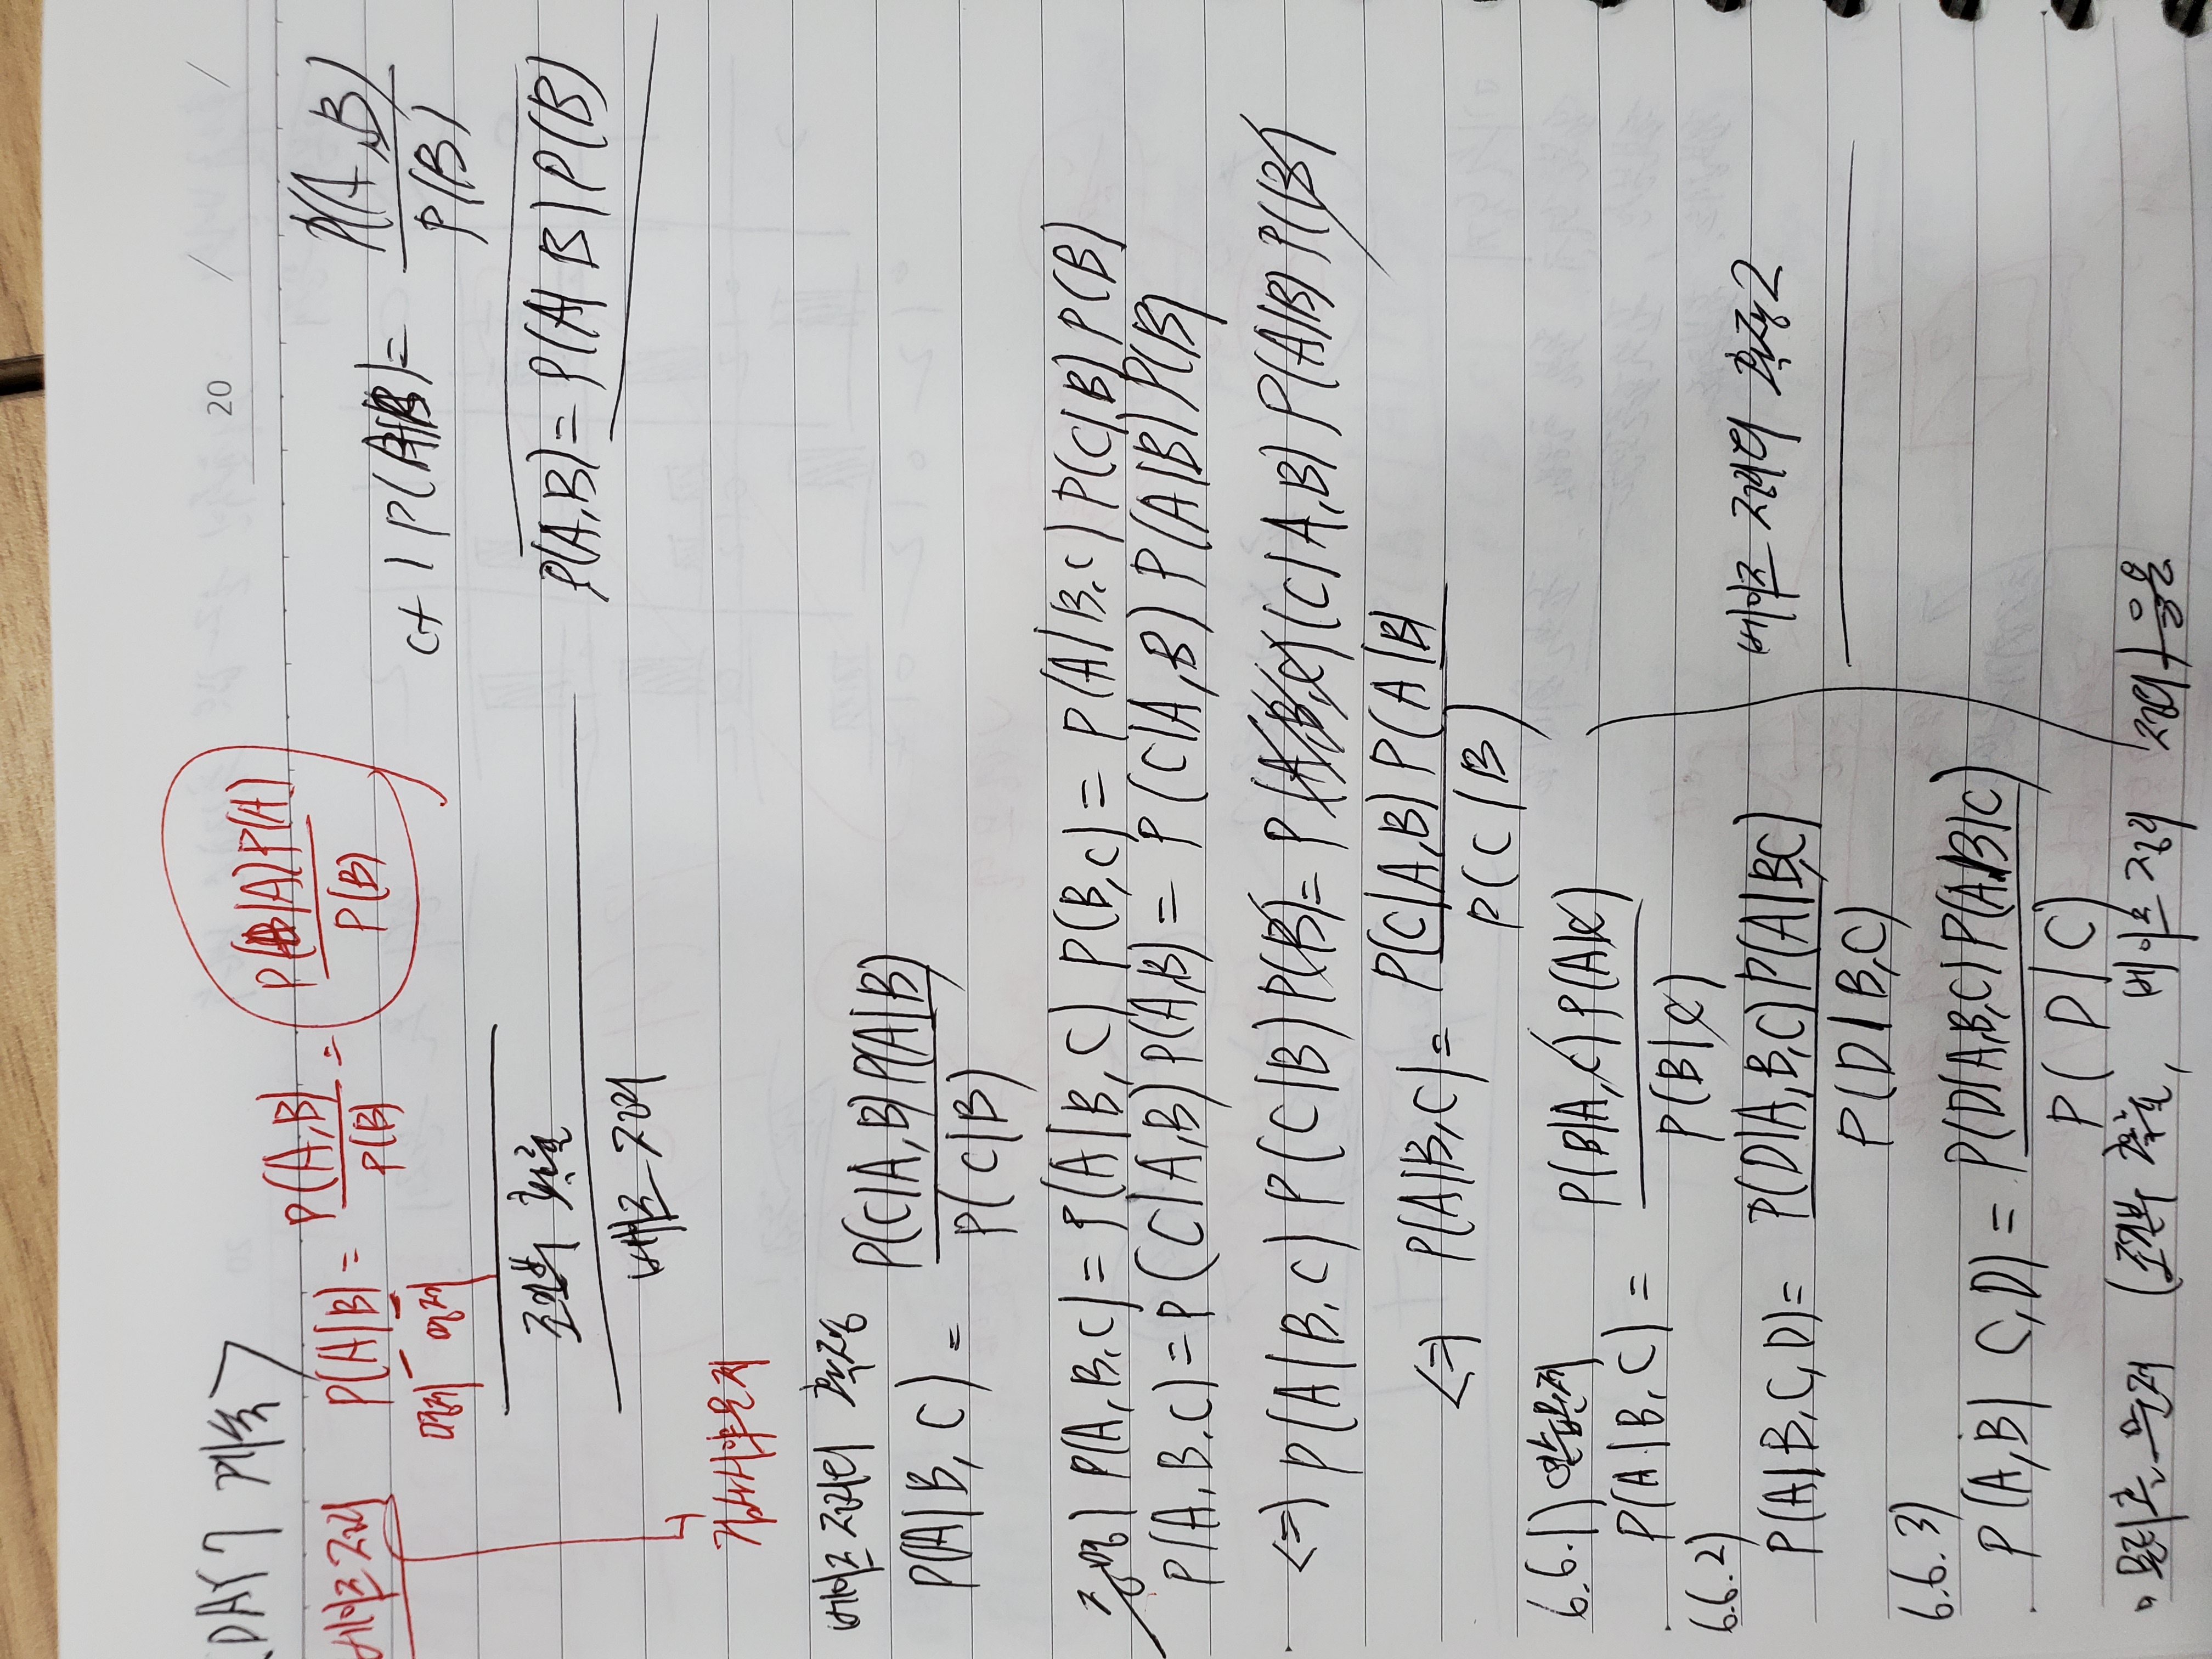 <DAY 7 계속>
20 / /
베이즈 정리 P(A|B) = P(A,B) / P(B) = P(B|A)P(A) / P(B)
명제 명제
조건부 확률
베이즈 정리
검사시약문제
P(A|B) = P(A,B) / P(B)
P(A,B) = P(A|B)P(B)
베이즈 정리의 확장
P(A|B, C) = P(C|A,B)P(A|B) / P(C|B)
증명) P(A,B,C) = P(A|B,C) P(B,C) = P(A|B,C) P(C|B) P(B)
P(A,B,C) = P(C|A,B) P(A,B) = P(C|A,B) P(A|B) P(B)
<=> P(A|B,C) P(C|B) P(B) = P(A,B,C)(C|A,B) P(A|B) P(B)
<=> P(A|B,C) = P(C|A,B) P(A|B) / P(C|B)
6.6.1) 연습문제
P(A|B,C) = P(B|A,C) P(A|C) / P(B|C)
6.6.2)
P(A|B,C,D) = P(D|A,B,C) P(A|B,C) / P(D|B,C)
베이즈 정리의 확장2
6.6.3)
P(A,B| C,D) = P(D|A,B,C) P(A,B|C) / P(D|C)
몬티홀 문제 (조건부 확률, 베이즈 정리 정의) 응용